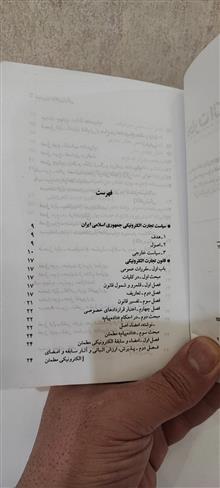 فهرست
● سیاست تجارت الکترونیکی جمهوری اسلامی ایران ۹
۱ـ هدف ۹
۲ـ اصول ۹
۳ـ سیاست خارجی ۱۰
● قانون تجارت الکترونیکی ۱۷
باب اول ـ مقررات عمومی ۱۷
مبحث اول ـ در کلیات ۱۷
فصل اول ـ قلمرو و شمول قانون ۱۷
فصل دوم ـ تعاریف ۱۷
فصل سوم ـ تفسیر قانون ۲۱
فصل چهارم ـ اعتبار قراردادهای خصوصی ۲۲
مبحث دوم ـ در احکام داده‌پیام ۲۲
نوشته، امضاء، اصل ۲۲
مبحث سوم ـ داده‌پیام مطمئن ۲۴
فصل اول ـ امضاء و سابقهٔ الکترونیکی مطمئن ۲۴
فصل دوم ـ پذیرش، ارزش اثباتی و آثار سابقه و امضای
الکترونیکی مطمئن ۲۴